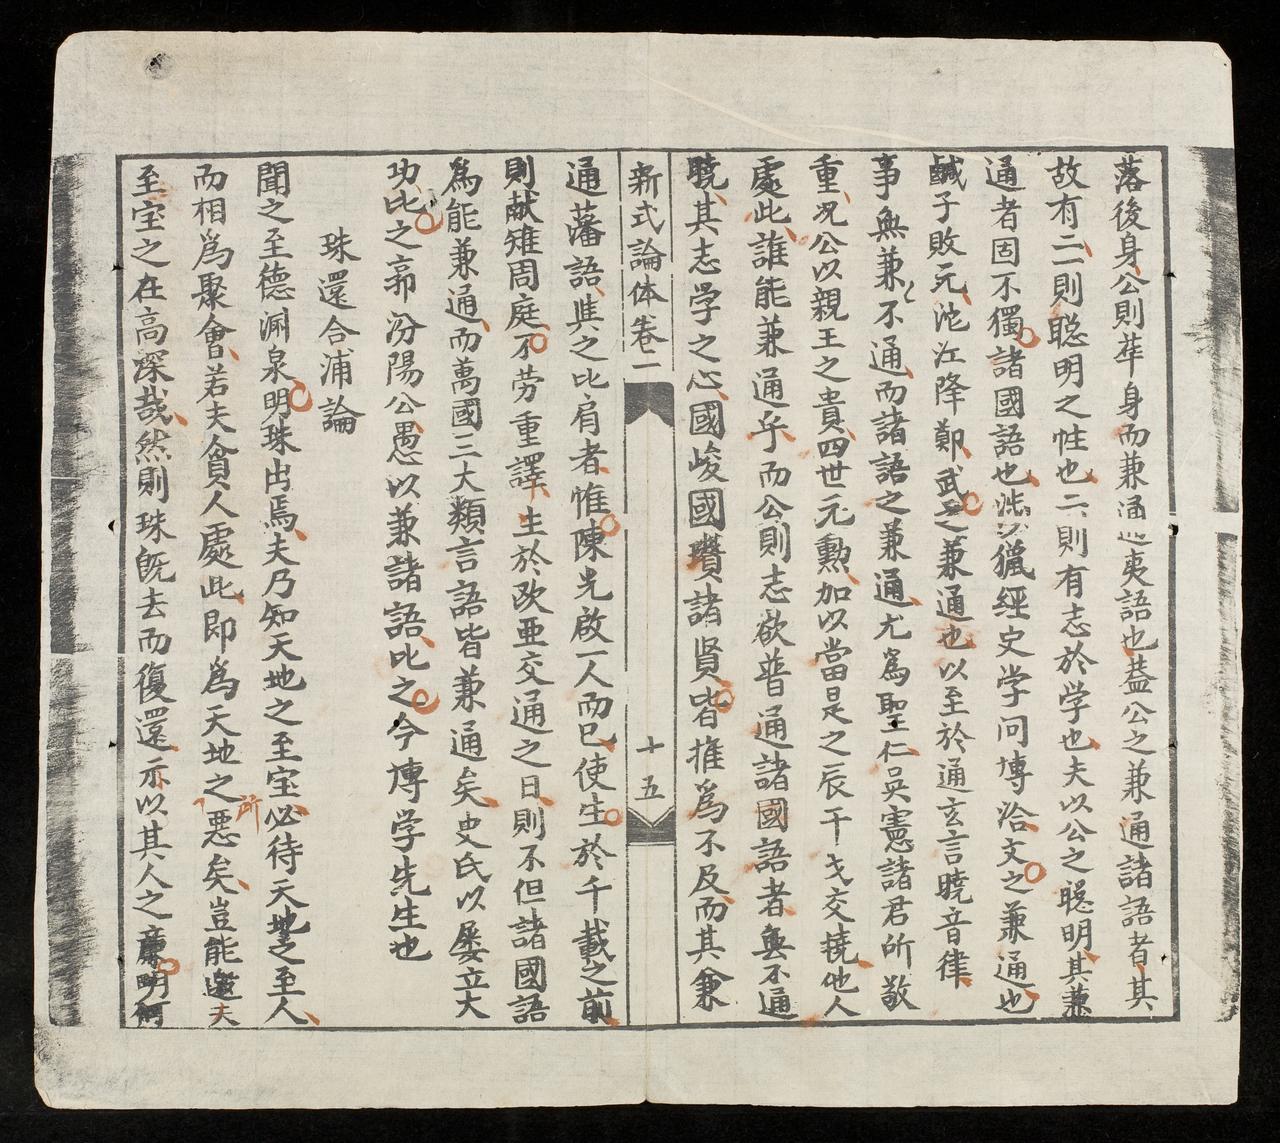 落後身公則萃身而兼通四夷語也葢公之兼通諸語者其
故有二一則聡明之性也二則有志於学也夫以公之聡明其兼
通者固不獨諸國語也涉獵經史学问博洽文之兼通也
鹹子敗元沱江降鄭武之兼通也以至於通玄言曉音律
事無兼不通而諸語之兼通尤為聖仁吳憲諸君所敬
重况公以親王之貴四世元勲加以當是之辰干戈交撓他人
處此誰能兼通乎而公則志欲普通諸國語者無不通
曉其志学之心國峻國瓚諸賢皆推為不及而其兼
新式論体卷二
十五
通蕃語與之比肩者惟陳光啟一人而已使生於千載之前
則献雉周庭不劳重譯生於欧亜交通之日則不但諸國語
為能兼通而萬國三大類言語皆兼通矣史氏以屡立大
功比之郭汾陽公愚以兼諸語比之今博学先生也
珠還合浦論
聞之至德渊泉明珠出焉夫乃知天地之至宝必待天地之至人
而相為聚會若夫貪人處此即為天地之所惡矣豈能邀夫
至宝之在高深哉然則珠既去而復還亦以其人之廉明何